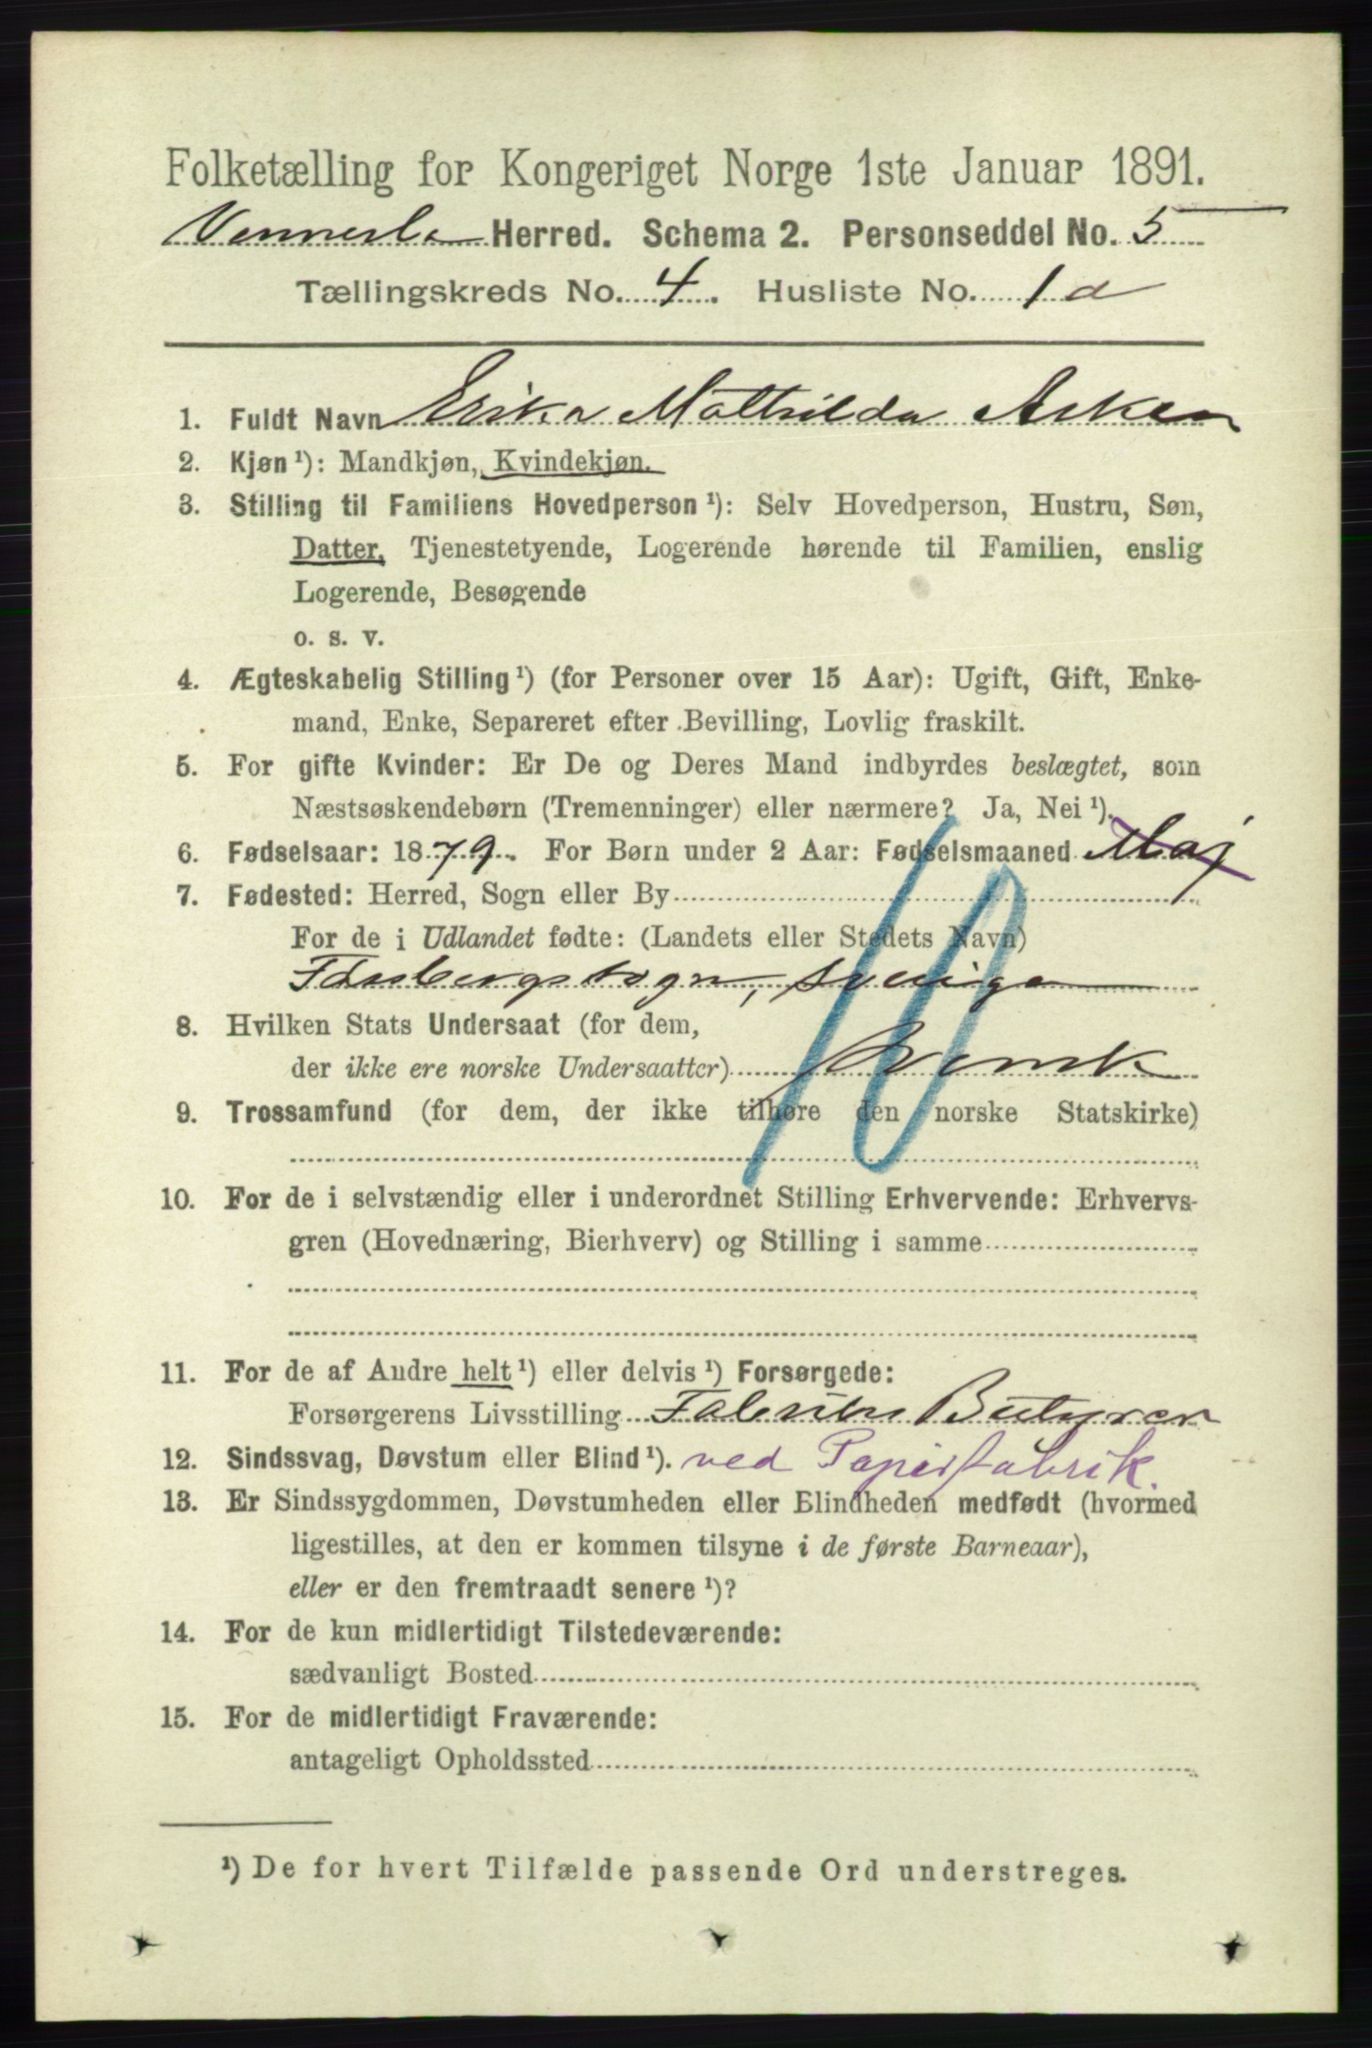 Folketælling for Kongeriget Norge 1ste Januar 1891.
Vennesla Herred. Schema 2. Personseddel No. 5
Tællingskreds No. 4. Husliste No. 1 a
1. Fuldt Navn Erika Mathilda Asker
2. Kjøn ¹): Mandkjøn, Kvindekjøn.
3. Stilling til Familiens Hovedperson ¹): Selv Hovedperson, Hustru, Søn,
Datter, Tjenestetyende, Logerende hørende til Familien, enslig
Logerende, Besøgende
o. s. v.
4. Ægteskabelig Stilling ¹) (for Personer over 15 Aar): Ugift, Gift, Enke-
mand, Enke, Separeret efter Bevilling, Lovlig fraskilt.
5. For gifte Kvinder: Er De og Deres Mand indbyrdes beslægtet, som
Næstsøskendebørn (Tremenninger) eller nærmere? Ja, Nei ¹).
6. Fødselsaar: 1879. For Børn under 2 Aar: Fødselsmaaned Maj
7. Fødested: Herred, Sogn eller By
For de i Udlandet fødte: (Landets eller Stedets Navn)
sogn, Sverige
8. Hvilken Stats Undersaat (for dem,
der ikke ere norske Undersaatter) Svensk
9. Trossamfund (for dem, der ikke tilhøre den norske Statskirke)
10
10. For de i selvstændig eller i underordnet Stilling Erhvervende: Erhvervs-
gren (Hovednæring, Bierhverv) og Stilling i samme
11. For de af Andre helt ¹) eller delvis ¹) Forsørgede:
Forsørgerens Livsstilling Fabriks
12. Sindssvag, Døvstum eller Blind ¹). ved Papirfabrik.
13. Er Sindssygdommen, Døvstumheden eller Blindheden medfødt (hvormed
ligestilles, at den er kommen tilsyne i de første Barneaar),
eller er den fremtraadt senere ¹)?
14. For de kun midlertidigt Tilstedeværende:
sædvanligt Bosted
15. For de midlertidigt Fraværende:
antageligt Opholdssted
¹) De for hvert Tilfælde passende Ord understreges.